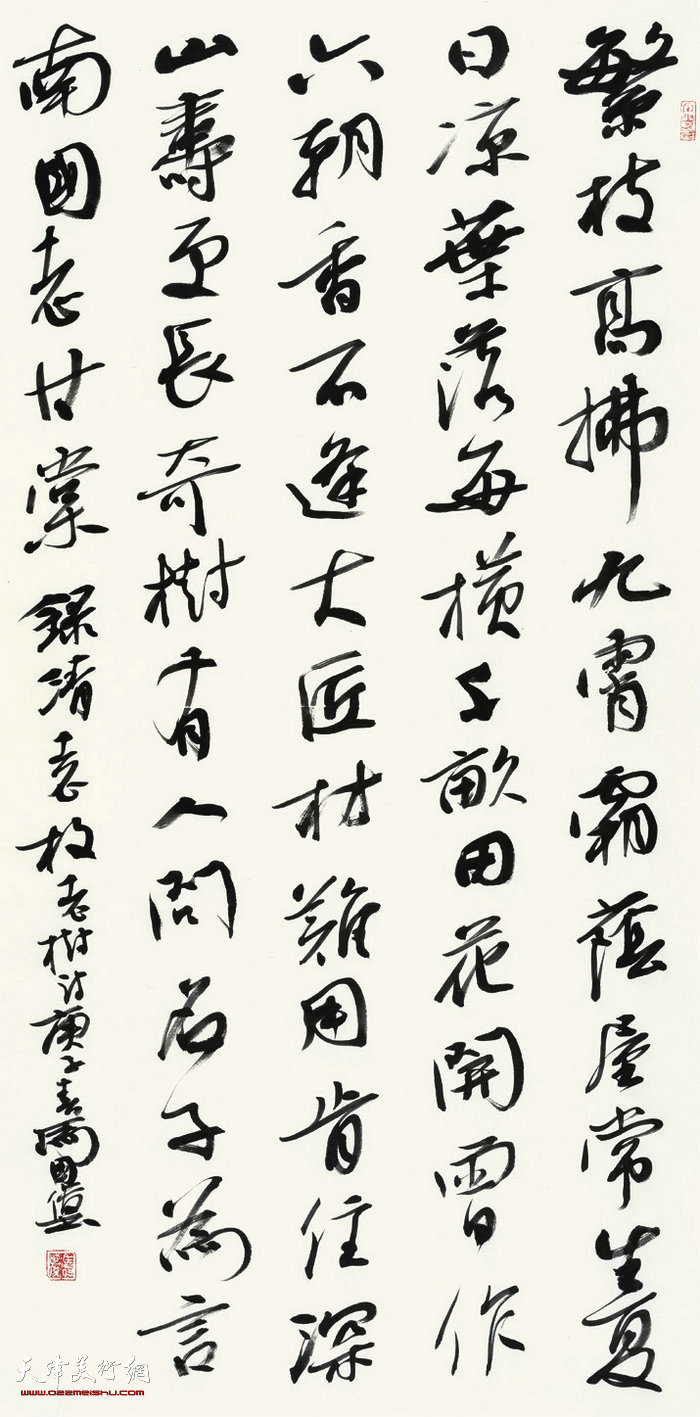 繁枝高拂九霄霜蔭屋常生夏
日凉葉落每橫千畝田花開曾作
六朝香不逢大匠材難用肯住深
山壽更長奇樹有人問名子為言
南國老甘棠 錄清袁枚老樹詩庚子春
天津美術網
www.022meishu.com